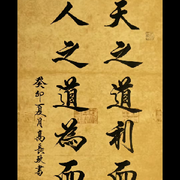 天之道利而
人之道為而
癸卯夏月高長延書